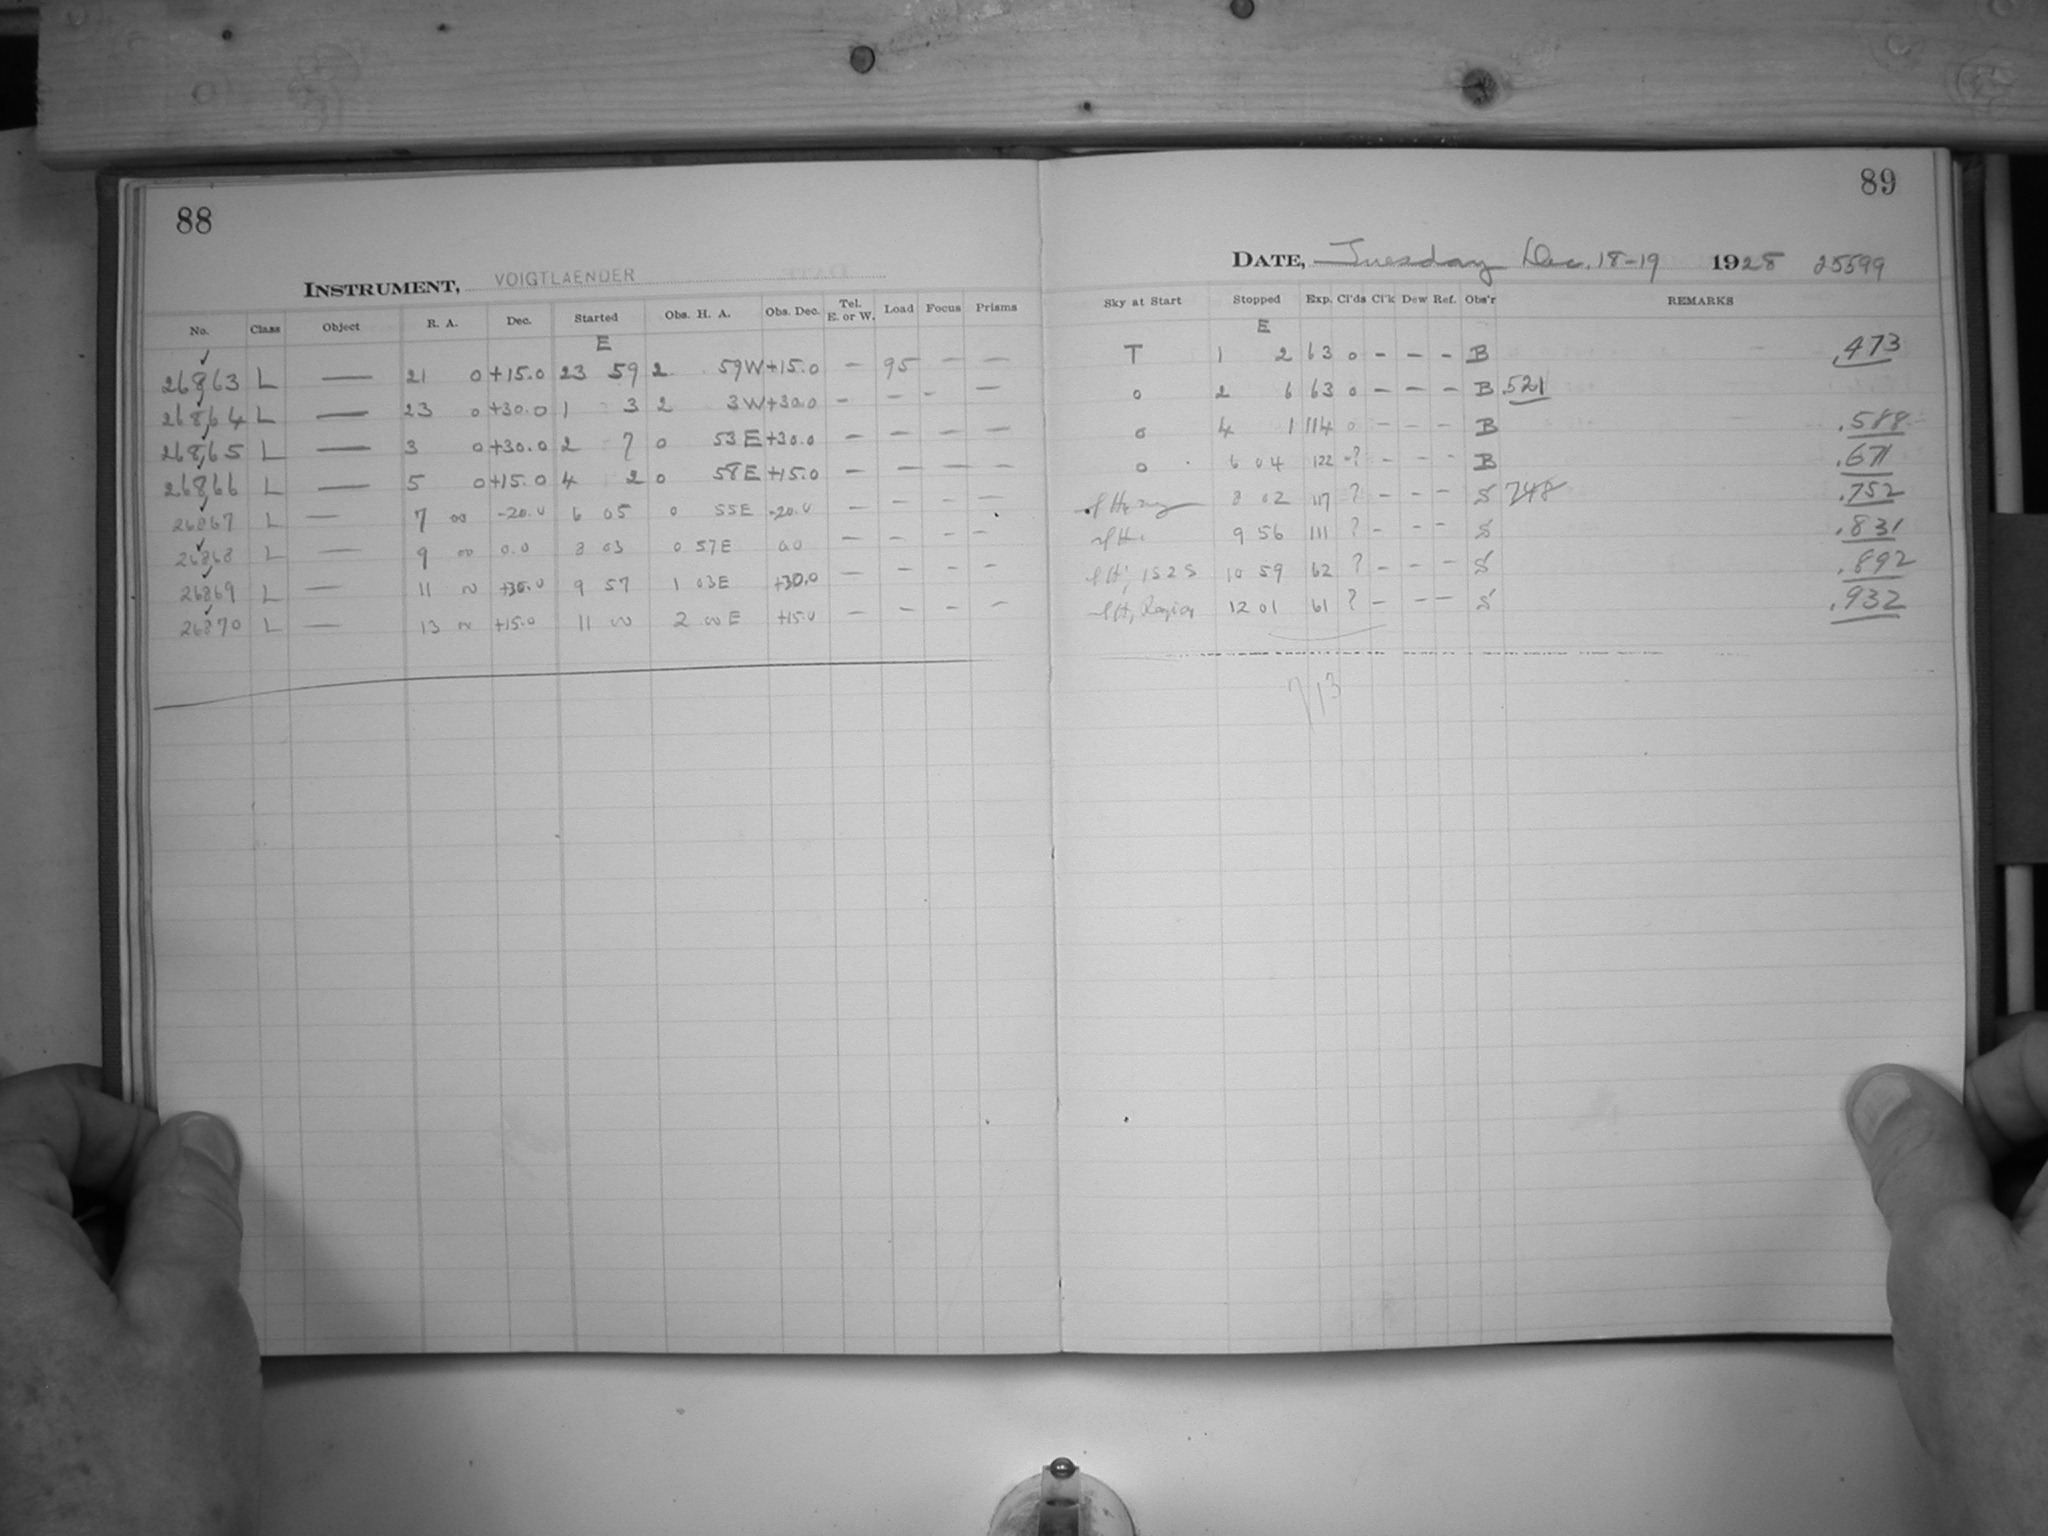 88
INSTRUMENT, VOIGTLAENDER
No. Class Object R. A. Dec. Started Obs. H. A. Obs. Dec. Tel. E. or W. Load Focus Prisms
E
26863 L — 21 0 +15.0 23 59 2 59W +15.0 — 95 — —
26864 L — 23 0 +30.0 1 3 2 3W +30.0 — — - —
26865 L — 3 0 +30.0 2 7 0 53E +30.0 — — — —
26866 L — 5 0 +15.0 4 2 0 58E +15.0 — — — —
26867 L — 7 00 -20.0 6 05 0 55E -20.0 — — — —
26868 L — 9 00 0.0 8 03 0 57E 0.0 — — — —
26869 L — 11 00 +30.0 9 57 1 03E +30.0 — — — —
26870 L — 13 00 +15.0 11 00 2 00E +15.0 — — — —
89
DATE, Tuesday Dec. 18-19 1928 25599
Sky at Start Stopped Exp. Cl'ds Cl'k Dew Ref. Obs'r REMARKS
E
T 1 2 63 0 - - - B .473
0 2 6 63 0 - - - B .521
0 4 1 114 0 - - - B .588
0 6 04 122 -? - - - B .671
8 02 117 ? - - - S 748 .752
9 56 111 ? - - - S .831
10 59 62 ? - - - S .892
12 01 61 ? - - - S .932
713